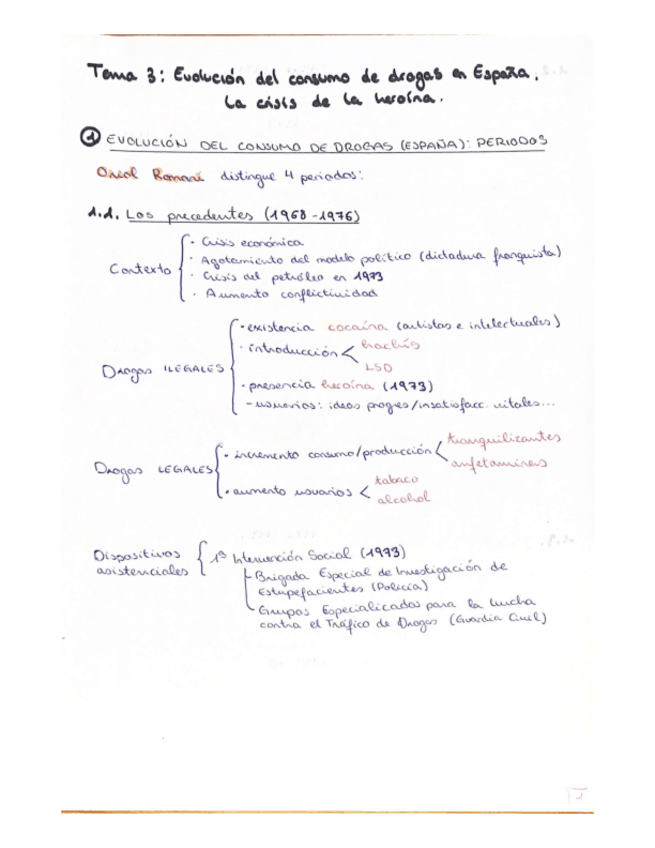 Tema 3: Evolución del consumo de drogas en España.
La crisis de la heroína.
1 EVOLUCIÓN DEL CONSUMO DE DROGAS (ESPAÑA): PERIODOS
Oriol Romaní distingue 4 periodos:
1.1. Los precedentes (1968-1976)
Contexto
· Crisis económica
· Agotamiento del modelo político (dictadura franquista)
· Crisis del petróleo en 1973
· Aumento conflictividad
Drogas ILEGALES
· existencia cocaína (artistas e intelectuales)
· introducción < hachís
LSD
· presencia heroína (1973)
- usuarios: ideas progres/insatisfacc. vitales...
Drogas LEGALES
· incremento consumo/producción < tranquilizantes
anfetaminas
· aumento usuarios < tabaco
alcohol
Dispositivos asistenciales
1ª Intervención Social (1973)
Brigada Especial de Investigación de
Estupefacientes (Policía)
Grupos Especializados para la lucha
contra el Tráfico de Drogas (Guardia Civil)